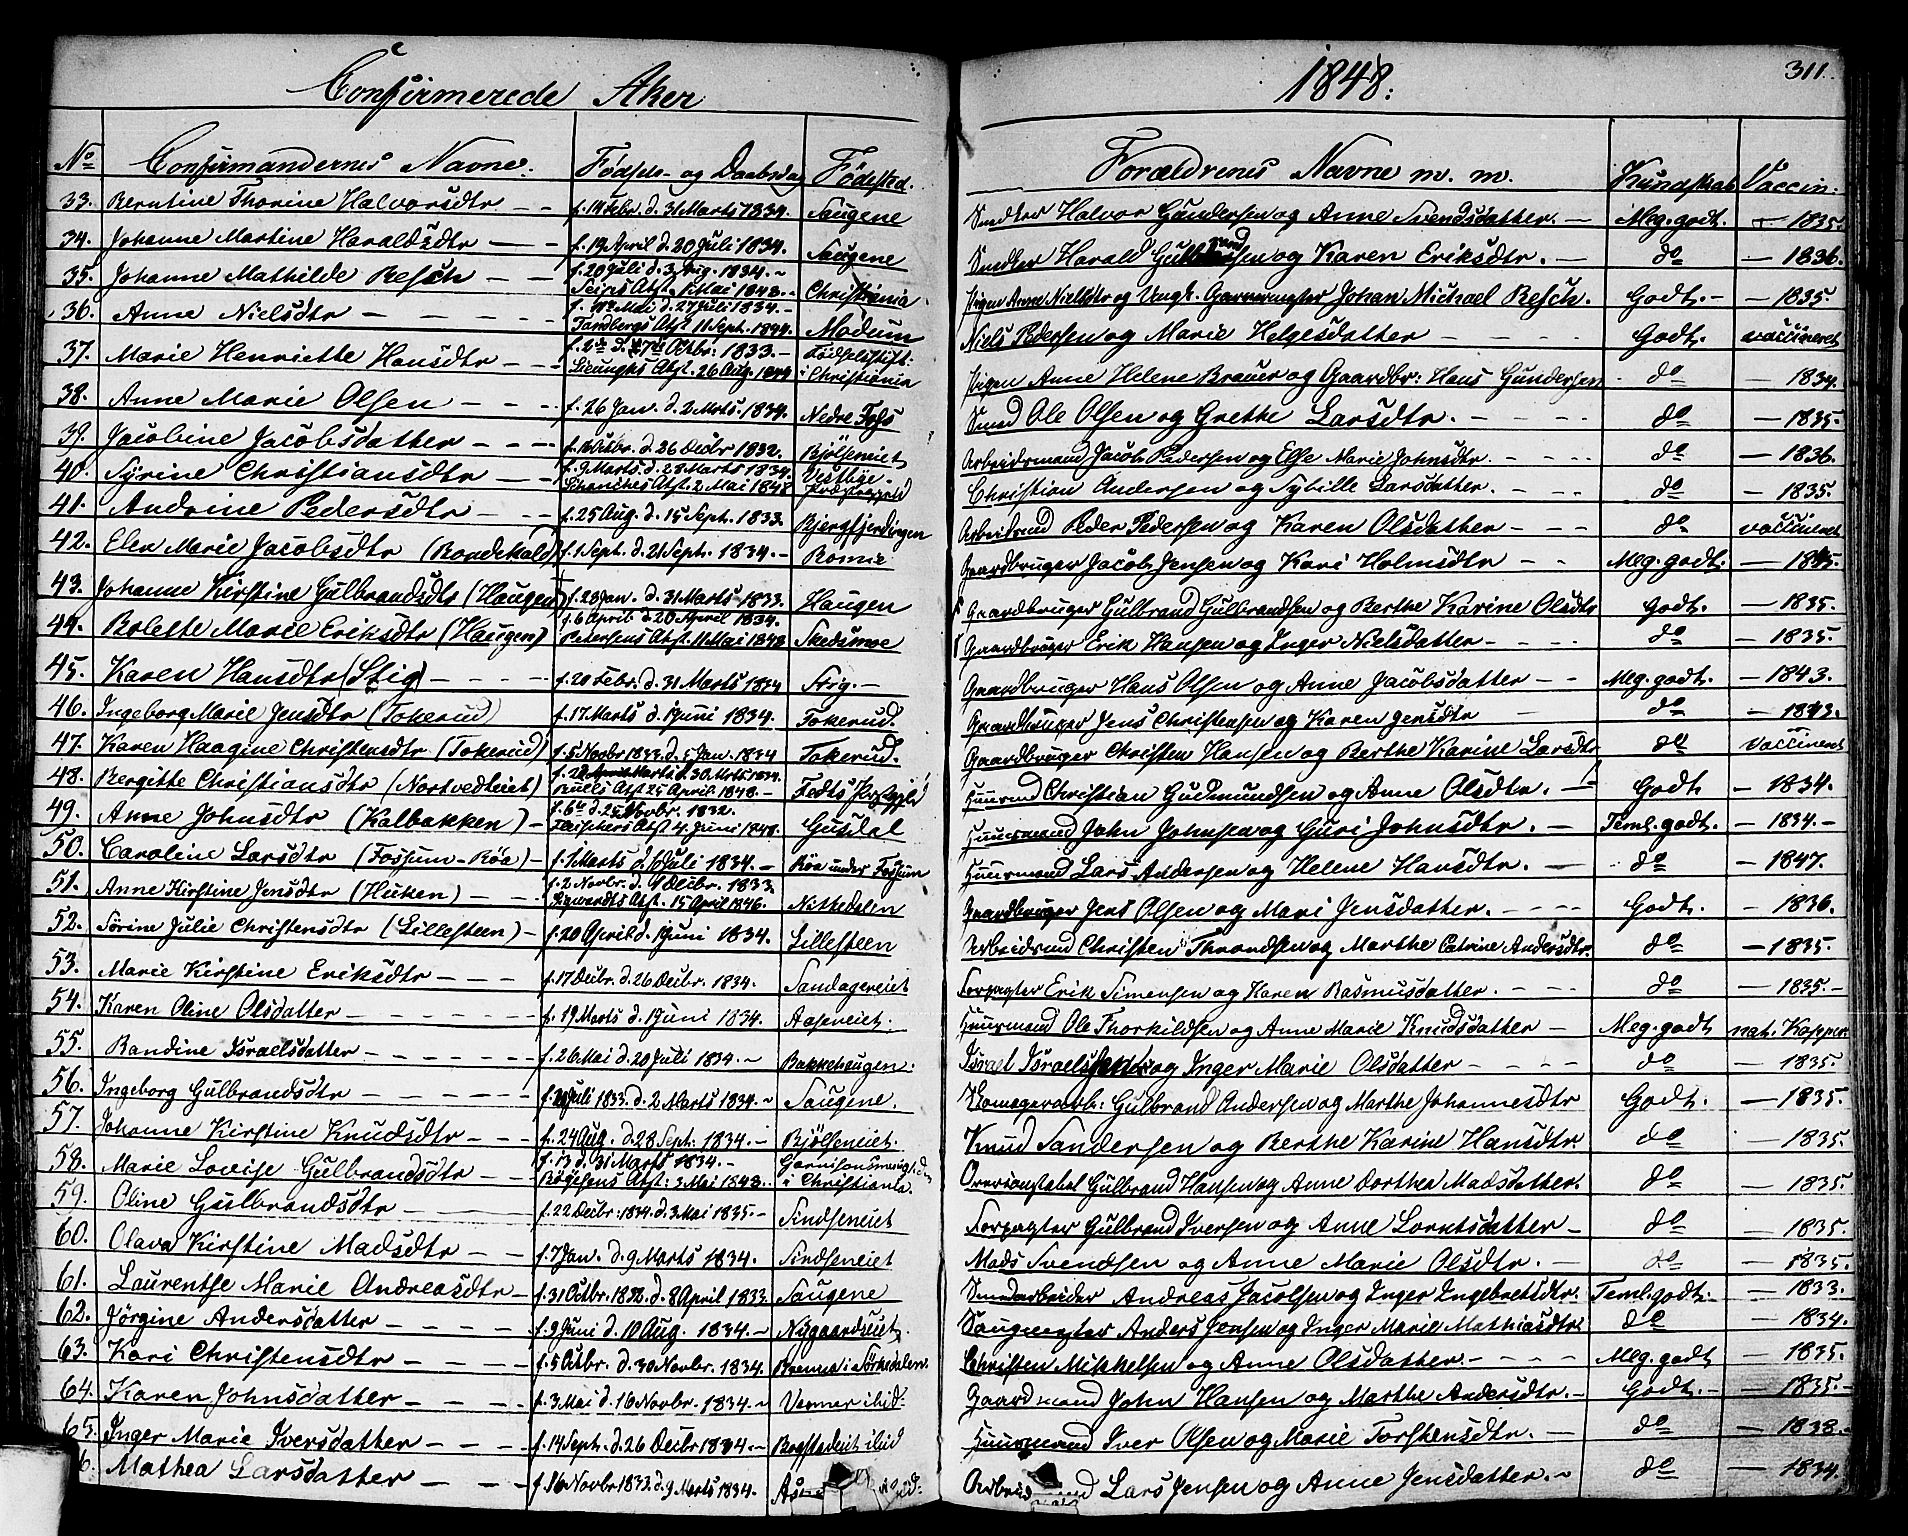 Confirmerede Aker
1848.
311.
No Confirmandernes Navne. Fødsels- og Daabsdag Fødested. Forældrenes Navne m. m. Kundskab Vaccin.
33. Berntine Thorine Halvorsdtr f. 14 Febr. d. 31 Marts 1834. Saugene Halvor Gundersen og Anne Svendsdatter. Meg. godt. 1835.
34. Johanne Martine Haraldsdtr f. 19 April d. 20 Juli 1834. Saugene Harald og Karen Eriksdtr. do 1836.
35. Johanne Mathilde Resch f. 20 Juli d. 3 Aug. 1834.
Attst. 1 Mai 1848. Christiania Pigen Anne Nielsdtr og Ungk. Garvermester Johan Michael Resch. Godt. 1835.
36. Anne Nielsdtr Mai d. 27 Juli 1834.
Tandbergs Atst 11 Sept. 1844. Modum Niels Pedersen og Marie Helgesdatter Godt. vaccineret
37. Marie Henriette Hansdtr Octbr: 1833.
Atst. 26 Aug. Fødselsstift:
i Christiania Pigen Anne Helene Brauer og Gaardbr: Hans Gundersen do 1834.
38. Anne Marie Olsen f. 26 Jan. d. 2 Mrts. 1834. Nedre Foss Smed Ole Olsen og Grethe Larsdtr. do 1835.
39. Jacobine Jacobsdatter d. 26 Decbr 1832. Bjølseneiet Arbeidsmand Jacob Pedersen og Else Marie Johnsdtr. do 1836.
40. Syrine Christiansdtr f. 9 Marts d. 28 Marts 1834.
Atst. 2 Mai 1848 Vestbye
Præstegjeld Christian Andersen og Sybille Larsdatter. do 1835.
41. Andrine Pedersdtr f. 25 Aug. d. 15 Sept. 1833. Bjergfjerdingen Arbeidsmd Peder Pedersen og Karen Olsdatter do vaccineret
42. Elen Marie Jacobsdtr f. 1 Sept. d. 21 Sept. 1834. Romie Gaardbruger Jacob Jensen og Kari Holmsdtr Meg. godt.
43. Johanne Kirstine Gulbrandsdtr (Haugen) f. 28 Jan. d. 31 Marts 1833. Haugen Gaardbruger Gulbrand Gulbrandsen og Berthe Karine Olsdtr Godt. 1835.
44. Bolette Marie Eriksdtr (Haugen) f. 6 April d. 20 April 1834.
Petersens Atst. 11 Mai 1848 Skedsmoe Gaardbruger Erik Hansen og Inger Nielsdatter do 1835.
45. Karen Hansdtr (Stig) f. 20 Febr. d. 31 Marts 1834 Stig. Gaardbruger Hans Olsen og Anne Jacobsdatter Meg. godt. 1843.
46. Ingeborg Marie Jensdtr (Tokerud) f. 17 Marts d. 1 Juni 1834. Tokerud. Gaardbruger Jens Christensen og Karen Jensdtr do 1843.
47. Karen Haagine Christensdtr (Tokerud) f. 5 Novbr 1833. d. 5 Jan. 1834 Tokerud. Gaardbruger Christen Hansen og Berthe Karine Larsdtr do Vaccineret
48. Bergitte Christiansdtr (Nortvedteiet) d. 30 Mrts 1834.
Atst 25 April 1848. Huusmd Christian Gudmundsen og Anne Olsdtr. Godt 1834.
49. Anne Johnsdtr (Kalbakken) f. 6te d. 25 Novbr. 1832.
Atst 4 Juni 1848. Gusdal Huusmand John Johnsen og Guri Johnsdtr. Teml. godt. 1834.
50. Caroline Larsdtr (Fossum-Røa) f. 1 Marts d. Juli 1834. Røa under Fossum Huusmand Lars Andersen og Helene Hansdtr. do 1847.
51. Anne Kirstine Jensdtr (Huken) f. 2 Novbr. d. Decbr. 1833.
Atst. 15 April 1846. Nittedalen Gaardbruger Jens Olsen og Mari Jensdatter. Godt. 1836.
52. Sørine Julie Christensdtr (Lillesteen) f. 20 April d. 1 Juni 1834. Lillesteen Arbeidsmd Christen Throndsen og Marthe Catrine Andersdtr. do 1835.
53. Marie Kirstine Eriksdtr f. 17 Decbr. d. 26 Decbr. 1834. Sandagereiet Forpagter Erik Simensen og Karen Rasmusdatter. do 1835.
54. Karen Oline Olsdatter f. 19 Marts d. 1 Juni 1834. Aaseneiet. Huusmand Ole Thorkildsen og Anne Marie Knudsdatter Meg. godt nat. Kopper
55. Randine Israelsdatter f. 26 Mai d. 20 Juli 1834. Bakkehaugen. Israel Israelsen og Inger Marie Olsdatter do 1835.
56. Ingeborg Gulbrandsdtr Juli 1833. d. 2 Marts 1834. Saugene. Gulbrand Andersen og Marthe Johannesdtr Godt. 1835.
57. Johanne Kirstine Knudsdtr f. 24 Aug. d. 28 Sept: 1834. Bjølseneiet. Knud Sandersen og Berthe Karine Hansdtr. do 1835.
58. Marie Lovise Gulbrandsdtr f. 13 d. 31 Marts 1834.
Atst: 3 Mai 1848. Garnisonsmenigheden
i Christiania. Overconstabel Gulbrand Hansen og Anne Dorthea Madsdatter. do 1835.
59. Oline Gulbrandsdtr f. 22 Decbr: 1834. d. 3 Mai 1835. Sindseneiet Forpagter Gulbrand Iversen og Anne Lorntsdatter do 1835.
60. Olava Kirstine Madsdtr f. 7 Jan. d. 9 Marts 1834. Sindseneiet Mads Svendsen og Anne Marie Olsdtr. do 1835.
61. Laurentse Marie Andreasdtr f. 31 Octbr. 1832. d. 8 April 1833. Saugene Andreas Jacobsen og Inger Ingebretsdtr. Teml. godt. 1833.
62. Jørgine Andersdatter f. 9 Juni d. 10 Aug. 1834. Nygaardseiet. Saugmester Anders Jensen og Inger Marie Mathiasdtr. do 1834.
63. Kari Christensdtr f. 5 Octbr. d. 30 Novbr. 1834. i Sørkedalen. Christen Mikkelsen og Anne Olsdatter. Meg. godt 1835.
64. Karen Johnsdatter f. 3 Mai d. 16 Novbr. 1834. ibid. Gaardmand John Hansen og Marthe Andersdtr. Godt. 1835.
65. Inger Marie Iversdatter f. 14 Sept. d. 26 Decbr 1834. Bogstadeiet ibid Huusmand Iver Olsen og Marie Torstensdtr. do 1838.
6. Mathea Larsdatter f. 16 Novbr 1833. d. 9 Marts 1834. Lars Jensen og Anne Jensdatter. do 1834.